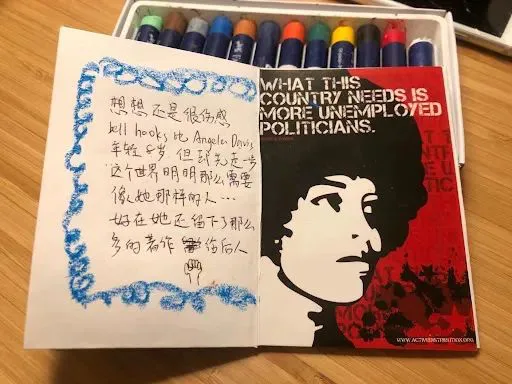 想想还是很伤感
bell hooks 比 Angela Davis
年轻8岁 但却先走一步
这个世界明明那么需要
像她那样的人…
好在她还留下了那么
多的著作 后人
WHAT THIS
COUNTRY NEEDS IS
MORE UNEMPLOYED
POLITICIANS.
WWW.ACTIVEDISTRIBUTION.ORG